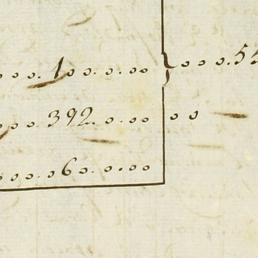 ooo. 1 oo. o. oo } ooo. 55
ooo. 392. o. oo oo
ooo. o 6 o. o. oo